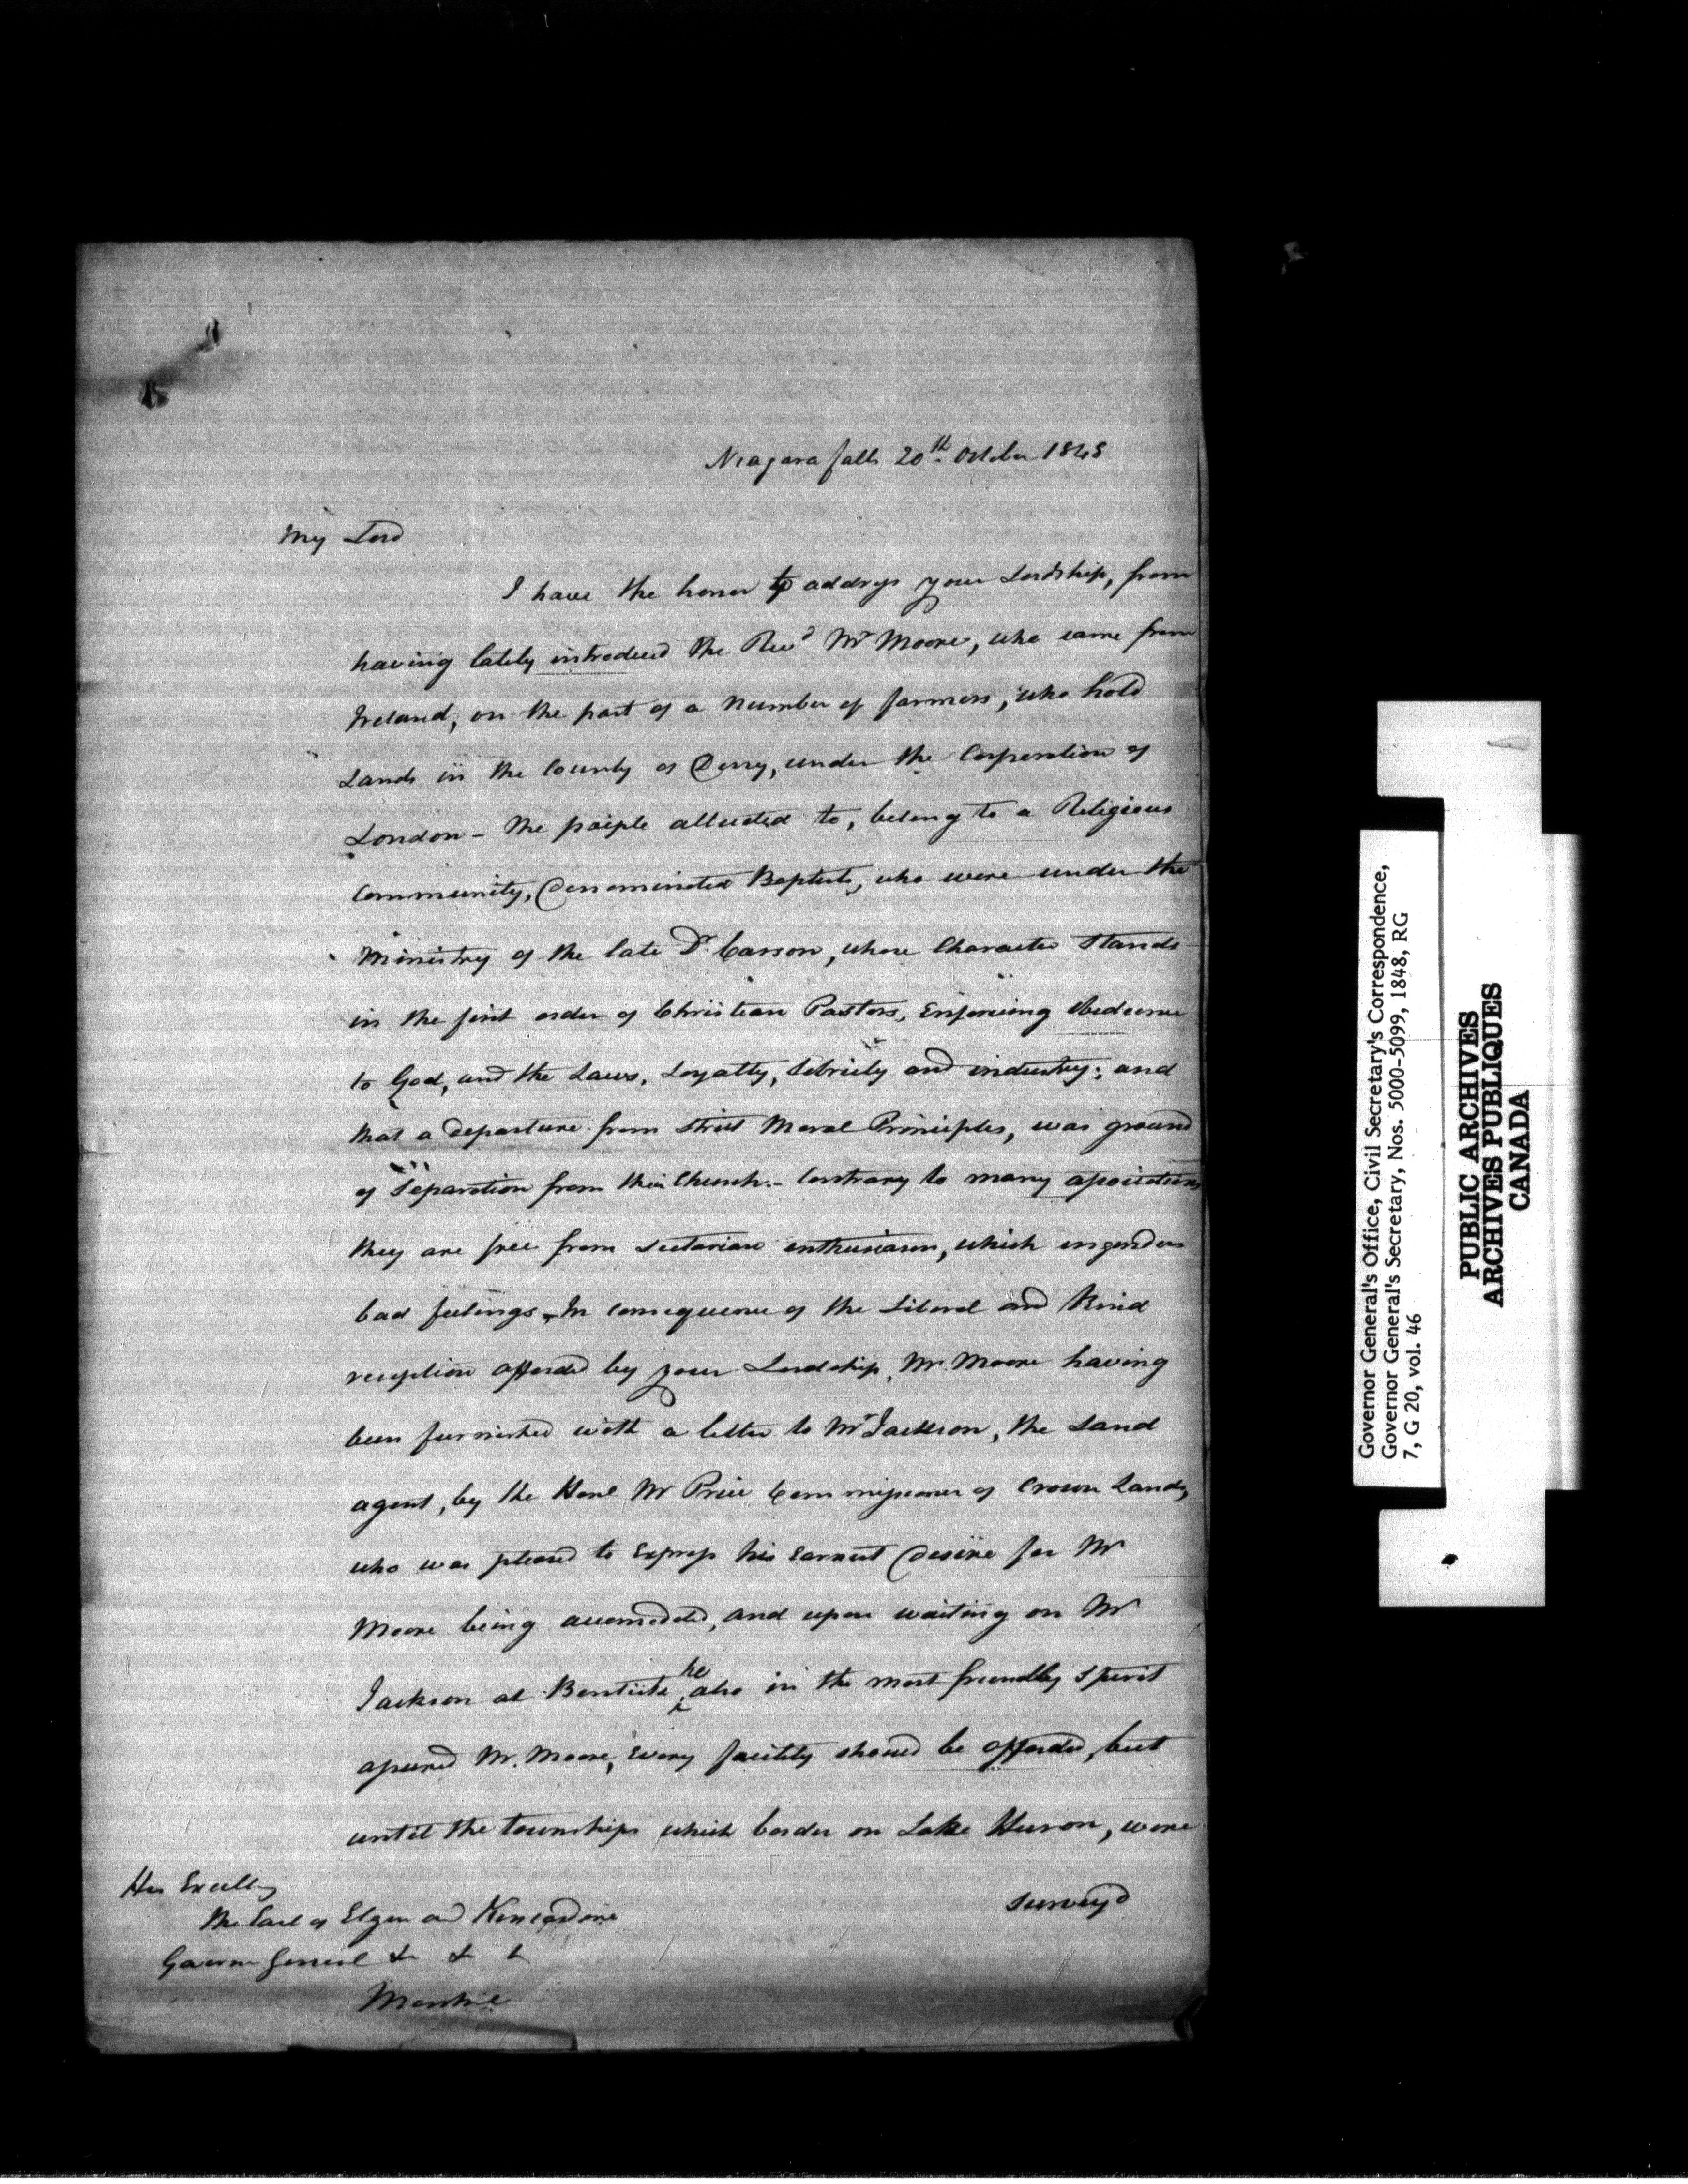 Niagara falls 20th October 1848
My Lord
I have the honor to address your Lordship, from
having lately introduced the Revd Mr Moore, who came from
Ireland, on the part of a number of farmers, who hold
Lands in the County of Derry, under the Corporation of
London - The people alluded to, belong to a Religious
Community, Denominated Baptists, who were under the
Ministry of the late Dr Carson, whose Character Stands
in the first order of Christian Pastors, Enforcing Obedience
to God, and the Laws, Loyalty, Sobriety and industry; and
that a departure from strict Moral Principles, was ground
of Separation from their Church. - Contrary to many associations
they are free from Sectarian enthusiasm, which engenders
bad feelings - In consequence of the Liberal and Kind
reception afforded by your Lordship, Mr. Moore having
been furnished with a letter to Mr Jackson, the Land
agent, by the Honl Mr Price Commissioner of Crown Lands,
who was pleased to Express his Earnest Desire for Mr
Moore being accomodated, and upon waiting on Mr
Jackson at Bentick, he also in the most friendly Spirit
assured Mr. Moore, Every facility should be afforded, but
until the townships which border on Lake Huron, were
survey'd
His Excelly
the Earl of Elgin and Kincardine
Governor General &c &c &c
Montreal
Governor General's Office, Civil Secretary's Correspondence,
Governor General's Secretary, Nos. 5000-5099, 1848, RG
7, G 20, vol. 46
PUBLIC ARCHIVES
ARCHIVES PUBLIQUES
CANADA